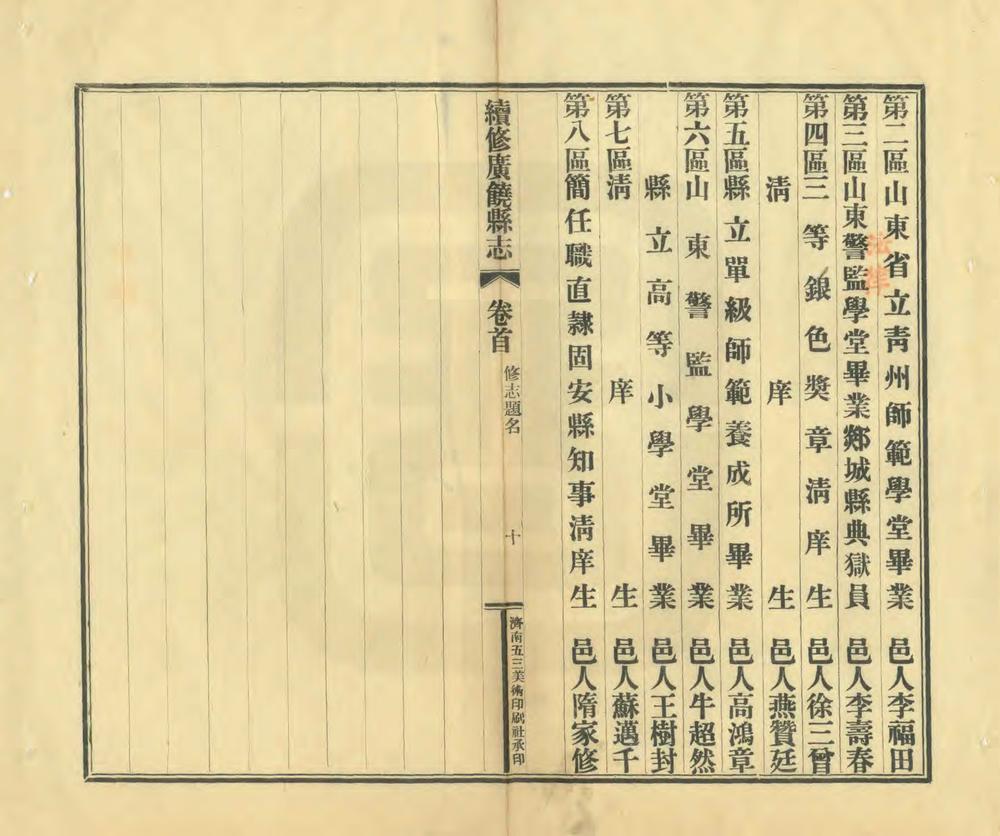 第二區山東省立靑州師範學堂畢業　邑人李福田
第三區山東警監學堂畢業郯城縣典獄員　邑人李壽春
第四區三等銀色奬章淸庠生　邑人徐三曾
淸庠生　邑人燕贊廷
第五區縣立單級師範養成所畢業　邑人高鴻章
第六區山東警監學堂畢業　邑人牛超然
縣立高等小學堂畢業　邑人王樹封
第七區淸庠生　邑人蘇邁千
第八區簡任職直隸固安縣知事淸庠生　邑人隋家修
續修廣饒縣志　卷首　修志題名　十　濟南五三美術印刷社承印